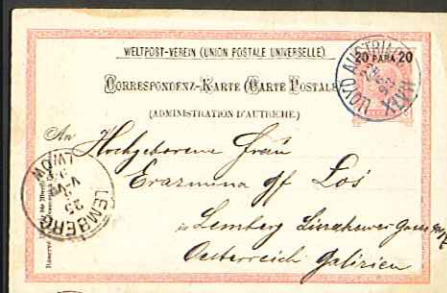 WELTPOST-VEREIN (UNION POSTALE UNIVERSELLE).
CORRESPONDENZ-KARTE (CARTE POSTALE)
(ADMINISTRATION D'AUTRICHE)
20 PARA 20
LLOYD AUSTRIACO
An
Hochgeborene Frau
Erasmina gf Los
in Lemberg
Oesterreich Galizien
LEMBERG
LWOW